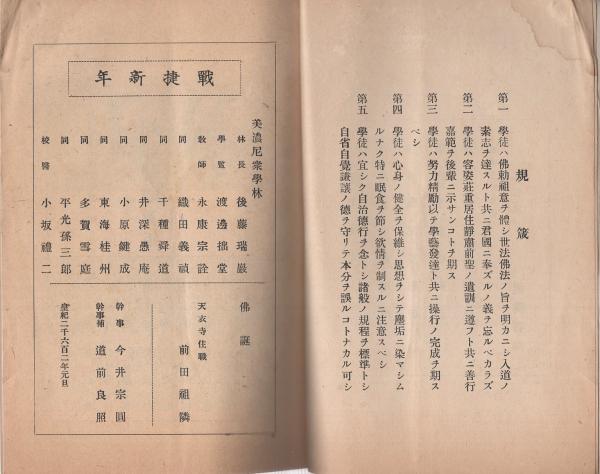 規箴
第一　學徒ハ佛勅祖意ヲ體シ世法佛法ノ旨ヲ明カニシ入道ノ
素志ヲ達スルト共ニ君國ニ奉ズルノ義ヲ忘ルベカラズ
第二　學徒ハ容姿莊重居住靜肅前聖ノ遺訓ニ遵フト共ニ善行
嘉範ヲ後輩ニ示サンコトヲ期ス
第三　學徒ハ努力精勵以テ學藝發達ト共ニ操行ノ完成ヲ期ス
ベシ
第四　學徒ハ心身ノ健全ヲ保維シ思想ヲシテ塵垢ニ染マシム
ルナク特ニ眠食ヲ節シ欲情ヲ制スルニ注意スベシ
第五　學徒ハ宜シク自治德行ヲ念トシ諸般ノ規程ヲ標準トシ
自省自覺謙讓ノ德ヲ守リテ本分ヲ誤ルコトナカル可シ
戰捷新年
美濃尼衆學林
林長　後藤瑞巖
學監　渡邊拙堂
教師　永康宗詮
同　織田義禎
同　千種舜道
同　井深愚庵
同　小原鍵成
同　東海桂州
同　多賀雪庭
同　平光孫三郎
校醫　小坂禮二
佛誕
天衣寺住職
前田祖隣
幹事　今井宗圓
幹事補　道前良照
皇紀二千六百二年元旦